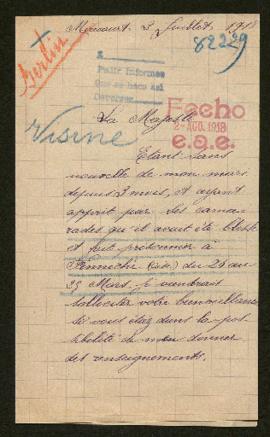 Mirecourt 3 Juillet 1918
82229
Berlin
Pedir informes
Que se haga así
Fecho
2-AGO.1918
e.o.e.
Visine
Sa Majesté
Etant sans
nouvelle de mon mari
depuis 3 mois, et ayant
apprit par des cama-
rades qu'il avait été blessé
et fait prisonnier à
(Oise) du 24 au
25 Mars, je viendrais
solliciter votre bienveillance
si vous étiez dans la pos-
sibilité de m'en donner
des renseignements.